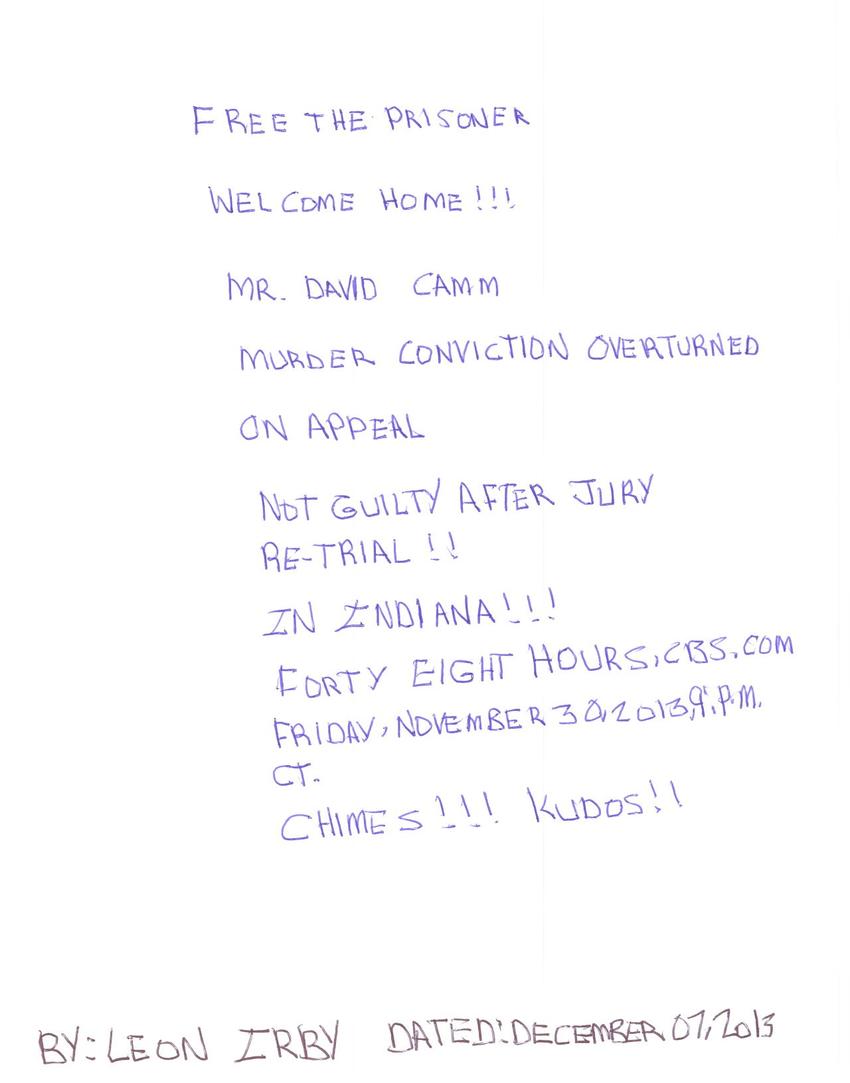 FREE THE PRISONER
WELCOME HOME!!!
MR. DAVID CAMM
MURDER CONVICTION OVERTURNED
ON APPEAL
NOT GUILTY AFTER JURY
RE-TRIAL!!
IN INDIANA!!!
FORTY EIGHT HOURS,CBS.COM
FRIDAY, NOVEMBER 30,2013,9:P.M.
CT.
CHIMES!!! KUDOS!!
BY: LEON IRBY DATED: DECEMBER 07, 2013